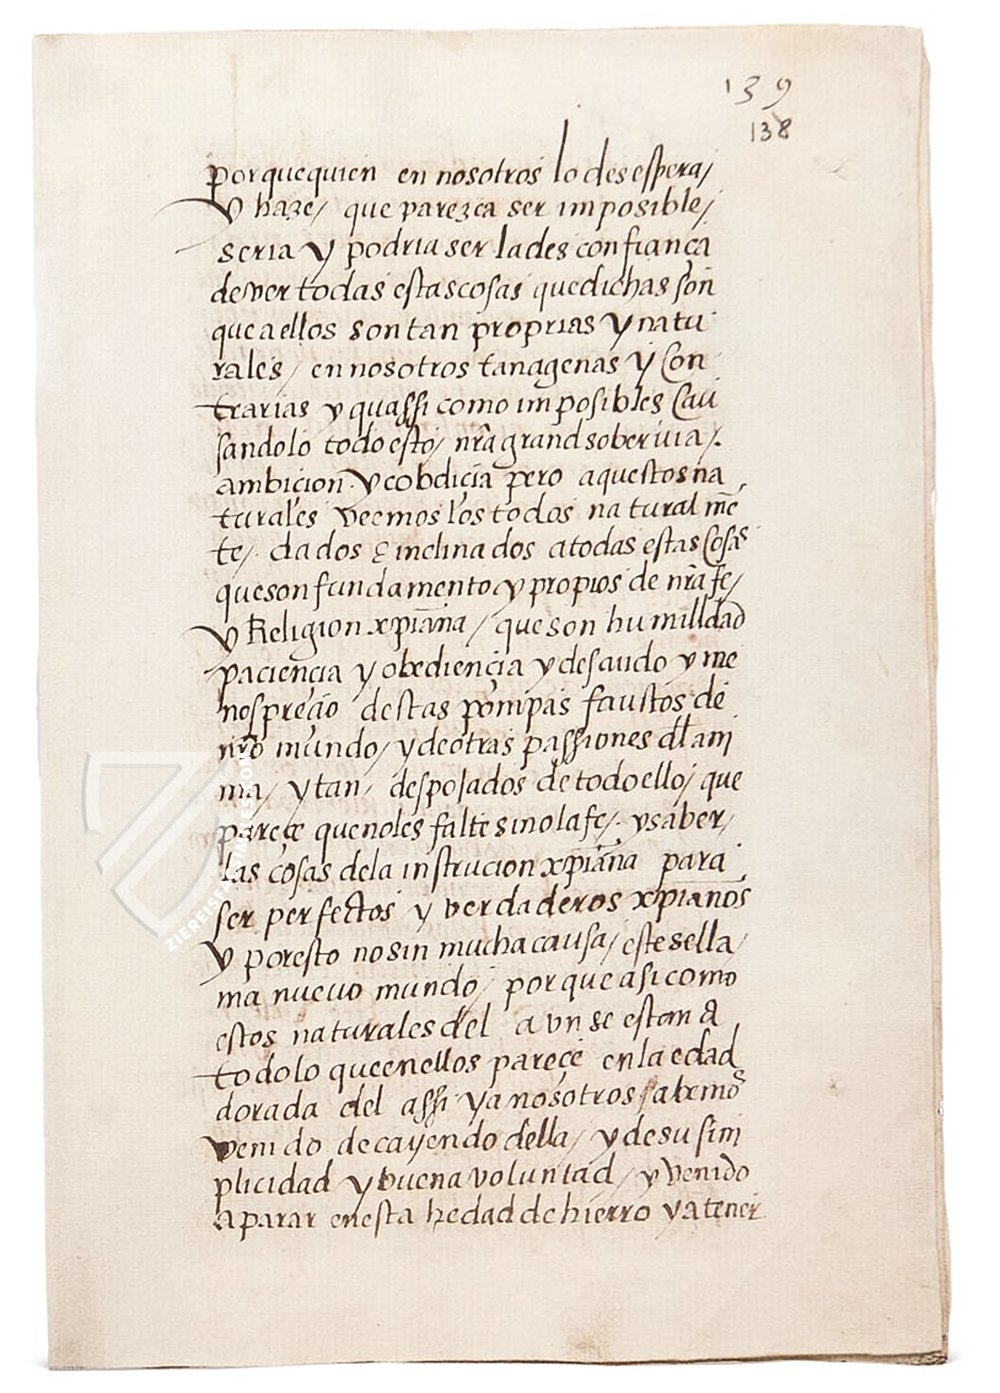 139
138
porque quien en nosotros lo desespera/
y haze/ que parezca ser imposible/
seria y podria ser la desconfiança
de ver todas estas cosas que dichas son
que a ellos son tan proprias y natu
rales/ en nosotros tan agenas y con
trarias y quassi como imposibles cau
sandolo todo esto/ nr̃a grand soberivia/.
ambicion. y cobdiçia pero aquestos na
turales veemos los todos natural mẽ
te/. dados e inclinados a todas estas cosas
que son fundamento y propios de nr̃a fe/
y Religion xp̃iana/ que son humilldad
paciençia y obediençia y desaudo y me
nospreçio destas pompas faustos de
nr̃o mundo/ y de otras passiones dl ani
ma/ y tan/ despojados de todo ello/ que
pareçe que no les falte sino la fe/. y saber/
las cosas de la instrucion xp̃iana para
ser perfectos y verdaderos xp̃ianos
y por esto no sin mucha causa/ este se lla/
ma nuevo mundo/ porque asi como
estos naturales del a vn se estan a
todo lo que en ellos pareçe en la edad
dorada del assi ya nosotros sabemos
venido decayendo della/ y de su sim
plicidad y buena voluntad/ y venido
a parar en esta hedad de hierro y a tener
ZIEREIS FACSIMILES.COM